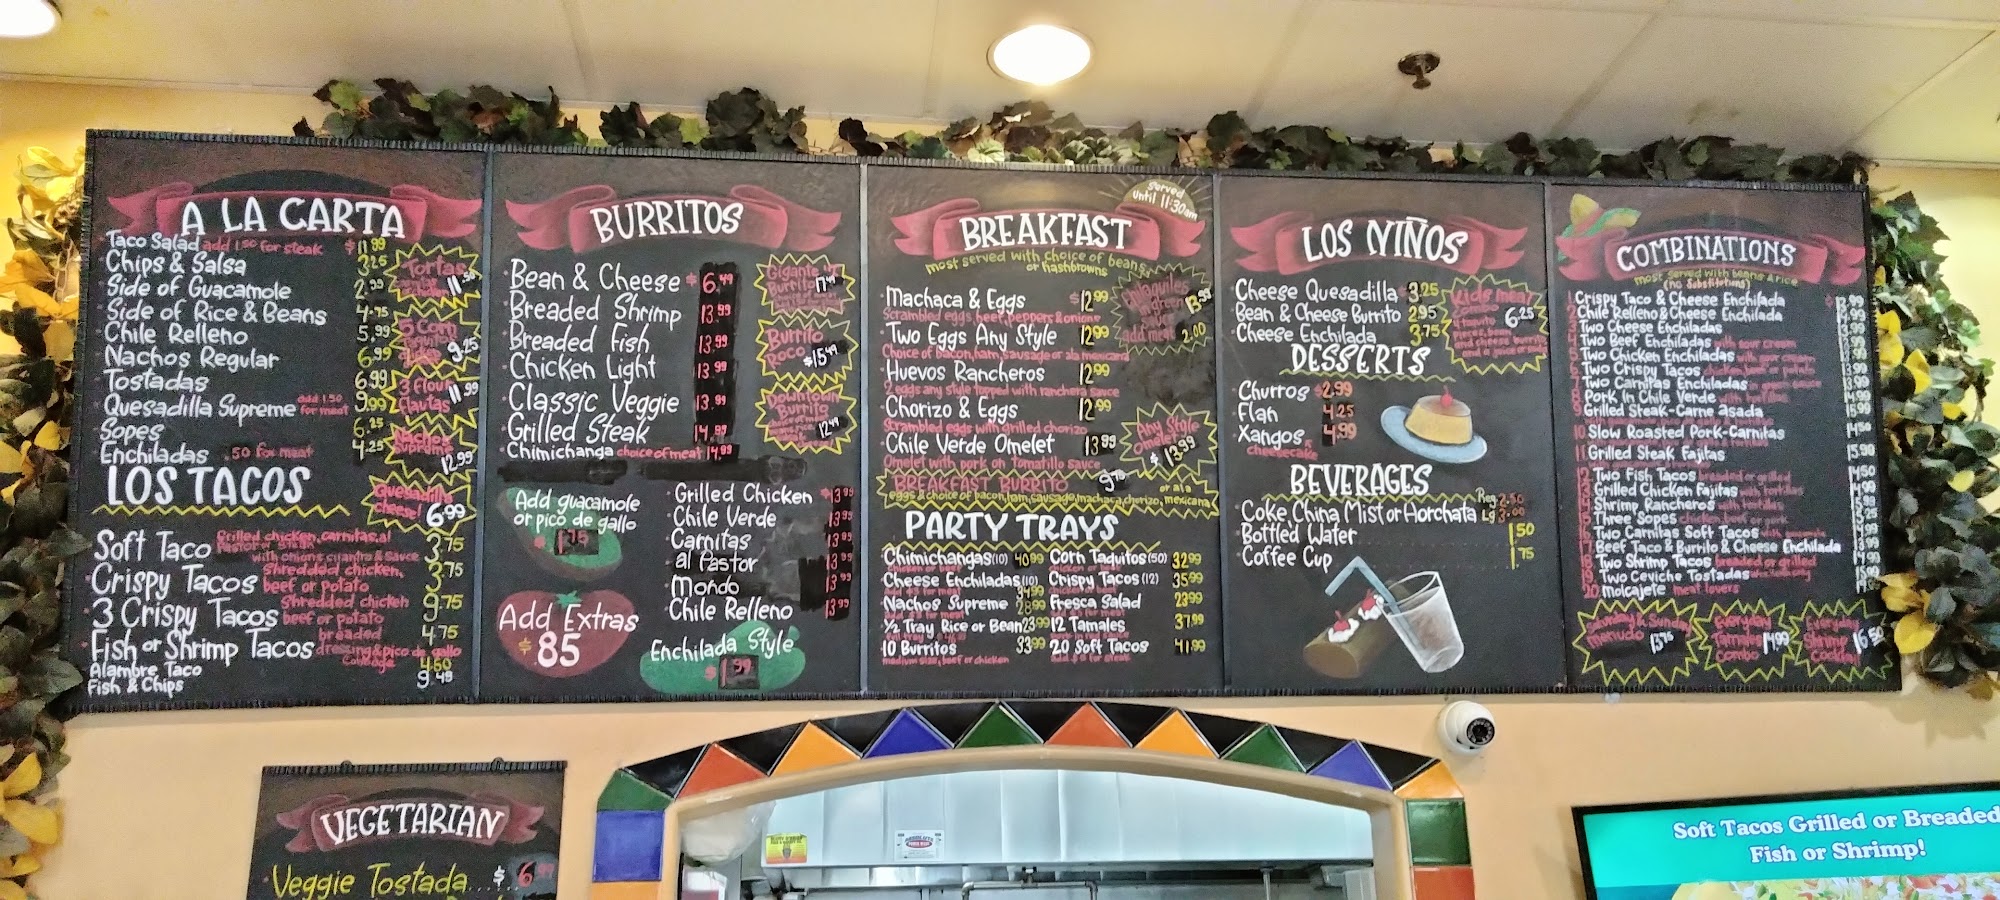 A LA CARTA
Taco Salad add 1.50 for steak $11.99
Chips & Salsa 3.25
Side of Guacamole 2.99
Side of Rice & Beans 4.75
Chile Relleno 5.99
Nachos Regular 6.99
Tostadas 6.99
Quesadilla Supreme add 1.50 for meat 9.99
Sopes 6.25
Enchiladas .50 for meat 4.25
Tortas 11.50
5 Corn 9.25
3 Flour Flautas 11.99
Nachos Supreme 12.99
Quesadilla Cheese! 6.99
LOS TACOS
Soft Taco Grilled chicken, carnitas, al pastor or steak with onions cilantro & sauce 3.75
Crispy Tacos shredded chicken, beef or potato 3.75
3 Crispy Tacos shredded chicken beef or potato 9.75
Fish or Shrimp Tacos breaded dressing & pico de gallo cabbage 4.75
Alambre Taco 4.60
Fish & Chips 9.49
BURRITOS
Bean & Cheese $6.49
Breaded Shrimp 13.99
Breaded Fish 13.99
Chicken Light 13.99
Classic Veggie 13.99
Grilled Steak 14.99
Chimichanga choice of meat 14.99
Gigante Burrito 17.49
Burrito Loco $15.49
Downtown Burrito 12.49
Add guacamole
or pico de gallo
1.75
Add Extras
$.85
Grilled Chicken $13.99
Chile Verde 13.99
Carnitas 13.99
al Pastor 13.99
Mondo 13.99
Chile Relleno 13.99
Enchilada Style
$1.99
served until 11:30am
BREAKFAST
most served with choice of beans
or hashbrowns
Machaca & Eggs $12.99
Scrambled eggs beef, peppers & onions
Two Eggs Any Style 12.99
Choice of bacon, ham, sausage or ala mexicana
Huevos Rancheros 12.99
2 eggs any style topped with ranchera sauce
Chorizo & Eggs 12.99
Scrambled eggs with grilled chorizo
Chile Verde Omelet 13.99
Omelet with pork on Tomatillo sauce
13.99
add meat 2.00
Any Style Omelet $13.99
BREAKFAST BURRITO 9.75 or ala
eggs & choice of bacon, ham, sausage, machaca, chorizo, mexicana
PARTY TRAYS
Chimichangas (10) 40.99
chicken or beef
Cheese Enchiladas (10) 34.99
Nachos Supreme 28.99
½ Tray Rice or Bean 23.99
10 Burritos 33.99
medium size, beef or chicken
Corn Taquitos (50) 32.99
chicken or beef
Crispy Tacos (12) 35.99
Fresca Salad 23.99
12 Tamales 37.99
20 Soft Tacos 41.99
add $5 for steak
LOS NIÑOS
Cheese Quesadilla 3.25
Bean & Cheese Burrito 2.95
Cheese Enchilada 3.75
Kids meal combo 6.25
DESSERTS
Churros $2.99
Flan 4.25
Xangos cheesecake 4.99
BEVERAGES
Coke China Mist or Horchata Reg 2.50 Lg 3.00
Bottled Water 1.50
Coffee Cup 1.75
COMBINATIONS
most served with beans & rice
(no substitutions)
1 Crispy Taco & Cheese Enchilada
2 Chile Relleno & Cheese Enchilada
3 Two Cheese Enchiladas
4 Two Beef Enchiladas with sour cream
5 Two Chicken Enchiladas with sour cream
6 Two Crispy Tacos chicken, beef or potato
7 Two Carnitas Enchiladas in green sauce
8 Pork in Chile Verde with tortillas
9 Grilled Steak-Carne Asada
10 Slow Roasted Pork-Carnitas 14.50
11 Grilled Steak Fajitas 15.90
12 Two Fish Tacos breaded or grilled 14.50
13 Grilled Chicken Fajitas with tortillas
14 Shrimp Rancheros with tortillas
15 Three Sopes chicken, beef or pork
16 Two Carnitas Soft Tacos with guacamole
17 Beef Taco & Burrito & Cheese Enchilada
18 Two Shrimp Tacos breaded or grilled
19 Two Ceviche Tostadas
20 Molcajete meat lovers
Saturday & Sunday Menudo 13.75
Everyday Tamales Combo 14.99
Everyday Shrimp Cocktail 16.50
VEGETARIAN
Veggie Tostada..... $6.99
Soft Tacos Grilled or Breaded
Fish or Shrimp!